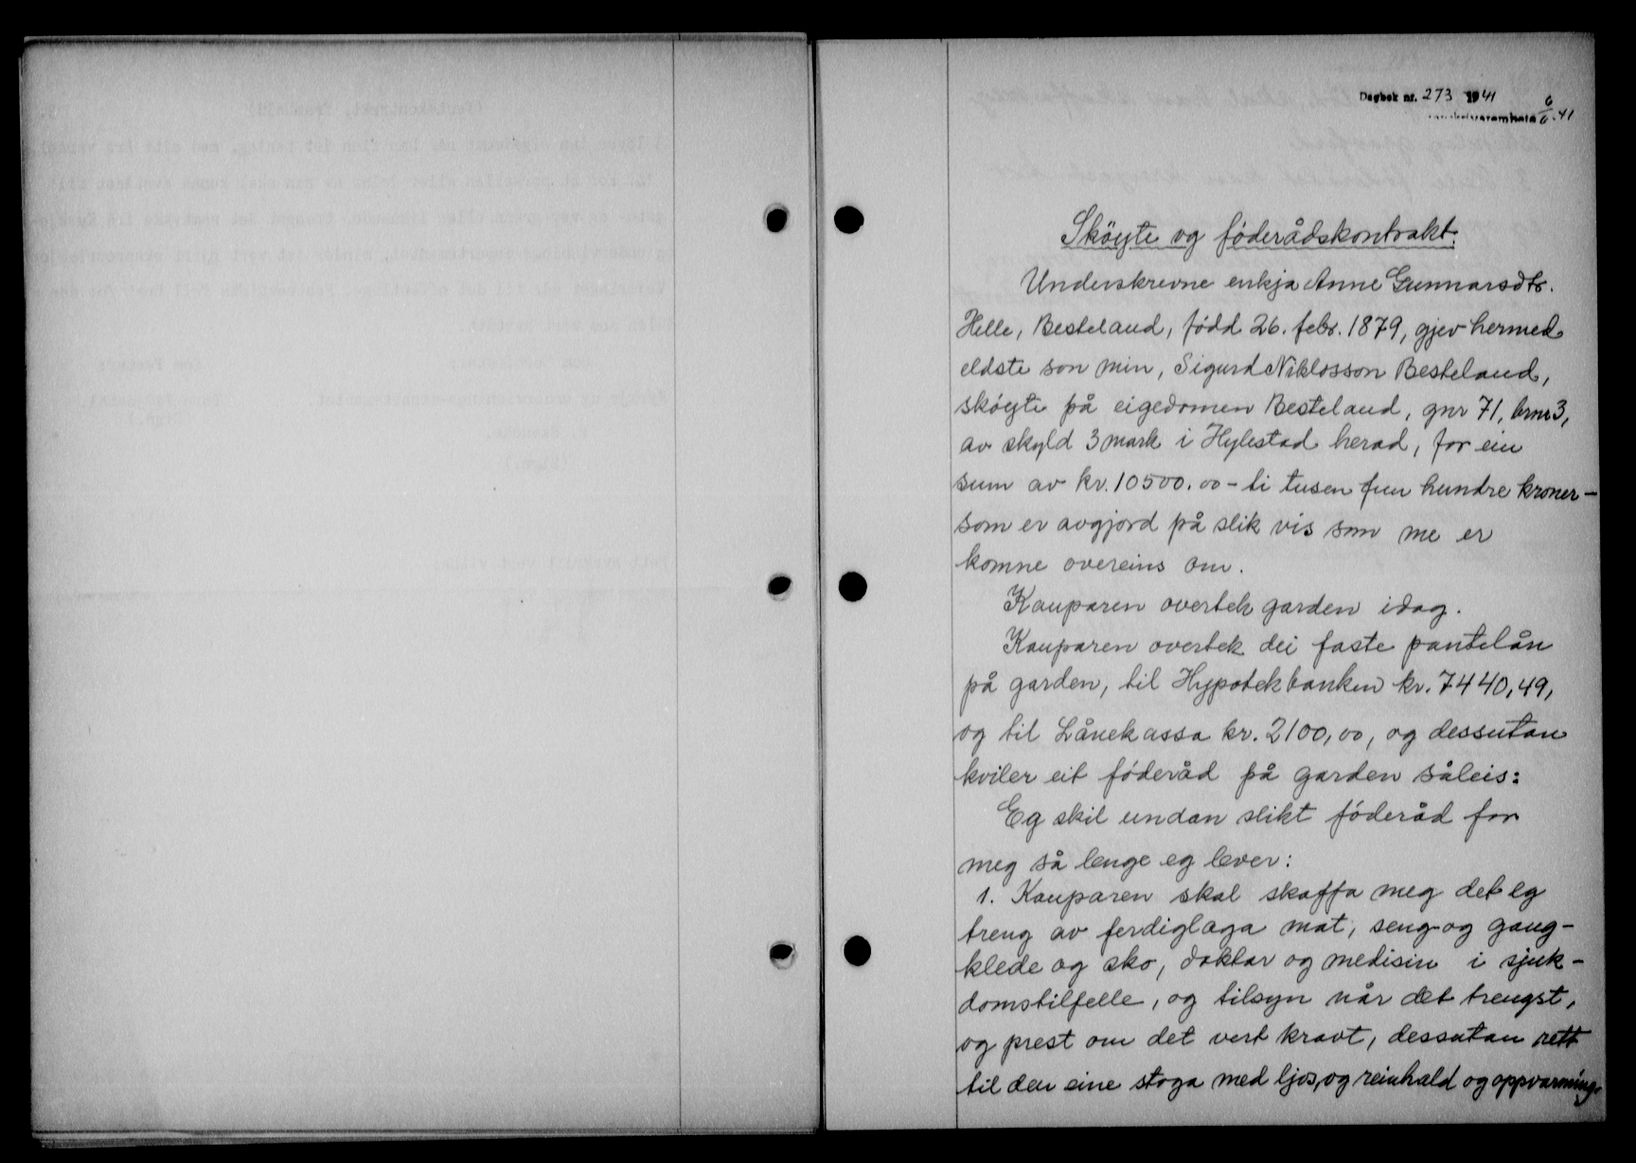 Dagbok nr. 273 1941
6/6.41
Sköyte og föderådskontrakt.
Underskrevne enkja Anne Gunnarsdtr.
Helle, Besteland, född 26. febr. 1879, gjev hermed
eldste son min, Sigurd Niklosson Besteland,
sköyte på eigedomen Besteland, gnr 71, brnr 3,
av skyld 3 mark i Hylestad herad, for ein
sum av kr. 10500.00 - ti tusen fem hundre kroner -
som er avgjord på slik vis som me er
komne overeins om.
Kauparen overtek garden idag.
Kauparen overtek dei faste pantelån
på garden, til Hypotekbanken kr. 7440,49,
og til Lånekassa kr. 2100,00, og dessutan
kviler eit föderåd på garden såleis:
Eg skil undan slikt föderåd for
meg så lenge eg lever:
1. Kauparen skal skaffa meg det eg
treng av ferdiglaga mat, seng- og gang-
klede og sko, doktar og medisin i sjuk-
domstilfelle, og tilsyn når det trengst,
og prest om det vert kravt, dessutan rett
til den eine stoga med ljos, og reinhald og oppvarming.